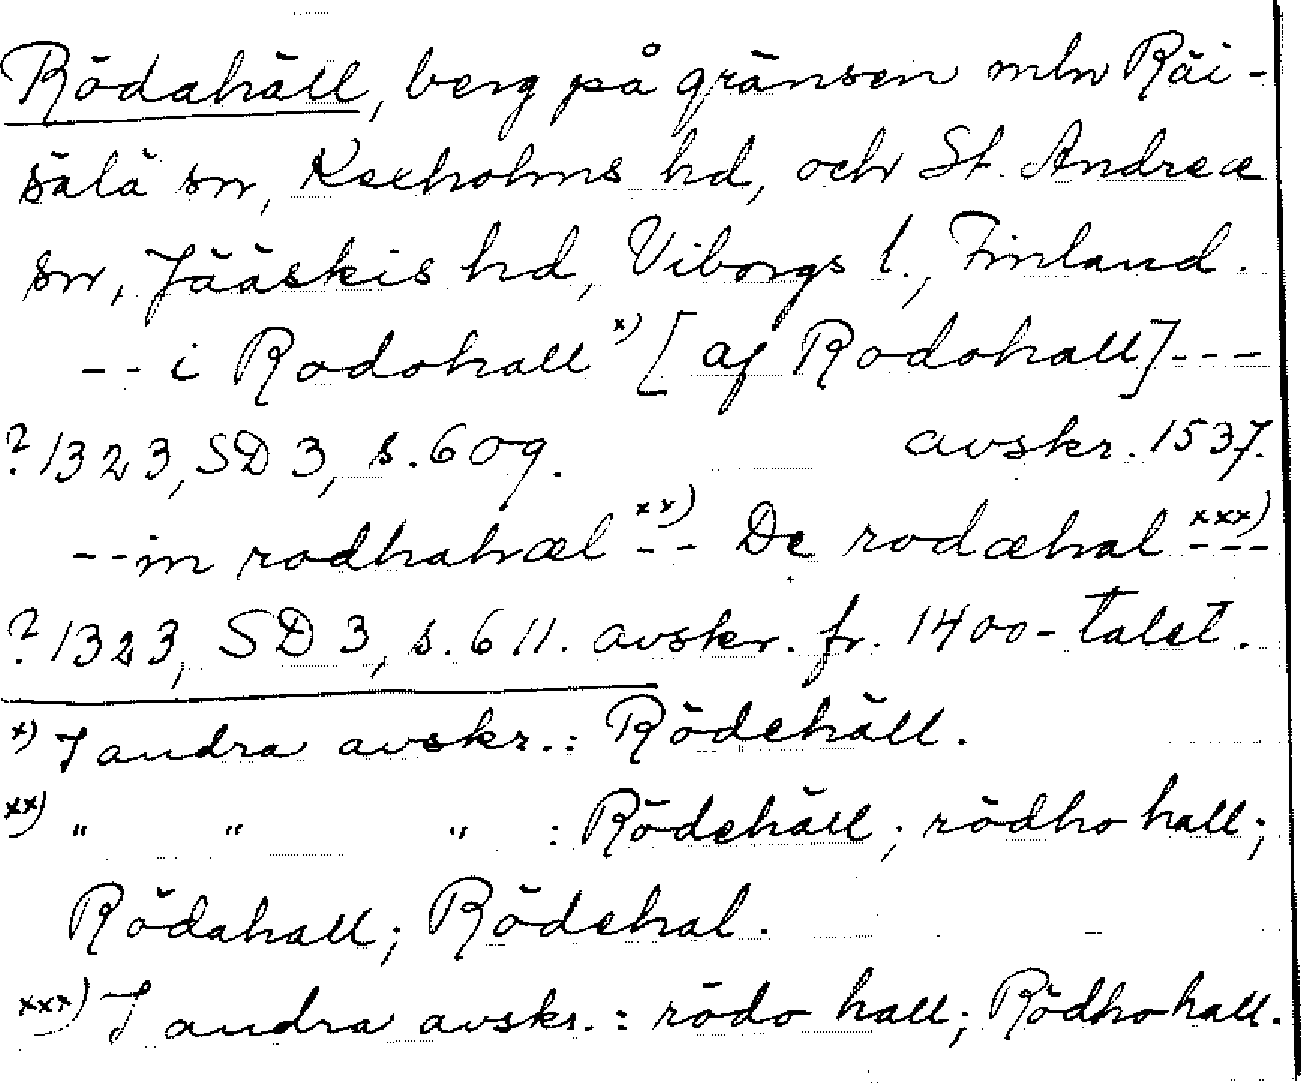 Rödahäll, berg på gränsen mln Räi-
sälä sn, Kexholms hd, och St. Andreæ
sn, Jääskis hd, Viborgs l., Finland.
-- i Rodohall x) [af Rodohall]---
? 1323, SD 3, s. 609. avskr. 1537.
--in rodhahæl xx) -- De rodæhal xxx) ---
? 1323, SD 3, s. 611. avskr. fr. 1400-talet.
x) I andra avskr.: Rödehäll.
xx) " " " : Rödehäll; rödho hall;
Rödahall; Rödehal.
xxx) I andra avskr.: rödo hall; Rödhohall.